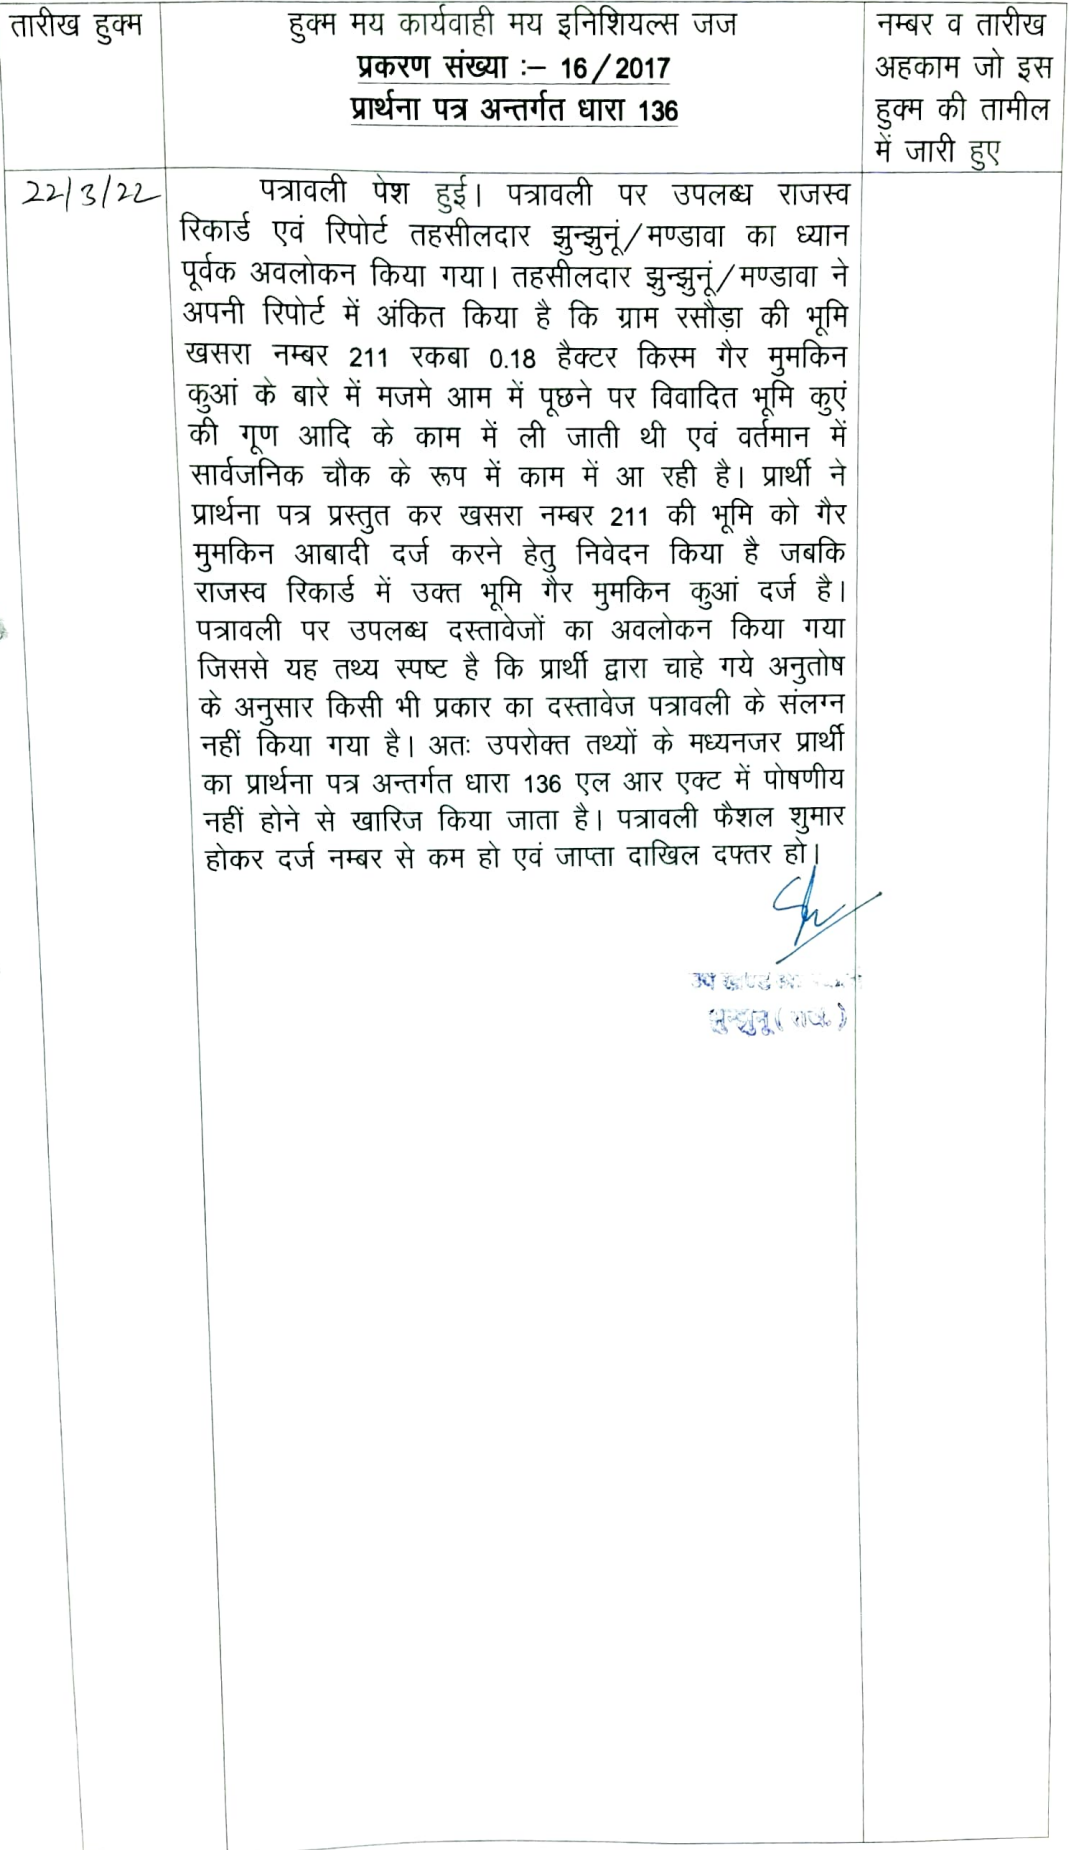 तारीख हुक्म
हुक्म मय कार्यवाही मय इनिशियल्स जज
प्रकरण संख्या :– 16/2017
प्रार्थना पत्र अन्तर्गत धारा 136
नम्बर व तारीख
अहकाम जो इस
हुक्म की तामील
में जारी हुए
22/3/22
पत्रावली पेश हुई। पत्रावली पर उपलब्ध राजस्व
रिकार्ड एवं रिपोर्ट तहसीलदार झुन्झुनूं/मण्डावा का ध्यान
पूर्वक अवलोकन किया गया। तहसीलदार झुन्झुनूं/मण्डावा ने
अपनी रिपोर्ट में अंकित किया है कि ग्राम रसौड़ा की भूमि
खसरा नम्बर 211 रकबा 0.18 हैक्टर किस्म गैर मुमकिन
कुआं के बारे में मजमे आम में पूछने पर विवादित भूमि कुएं
की गूण आदि के काम में ली जाती थी एवं वर्तमान में
सार्वजनिक चौक के रूप में काम में आ रही है। प्रार्थी ने
प्रार्थना पत्र प्रस्तुत कर खसरा नम्बर 211 की भूमि को गैर
मुमकिन आबादी दर्ज करने हेतु निवेदन किया है जबकि
राजस्व रिकार्ड में उक्त भूमि गैर मुमकिन कुआं दर्ज है।
पत्रावली पर उपलब्ध दस्तावेजों का अवलोकन किया गया
जिससे यह तथ्य स्पष्ट है कि प्रार्थी द्वारा चाहे गये अनुतोष
के अनुसार किसी भी प्रकार का दस्तावेज पत्रावली के संलग्न
नहीं किया गया है। अतः उपरोक्त तथ्यों के मध्यनजर प्रार्थी
का प्रार्थना पत्र अन्तर्गत धारा 136 एल आर एक्ट में पोषणीय
नहीं होने से खारिज किया जाता है। पत्रावली फैशल शुमार
होकर दर्ज नम्बर से कम हो एवं जाप्ता दाखिल दफ्तर हो।
उप खण्ड
झुन्झुनू (राज.)